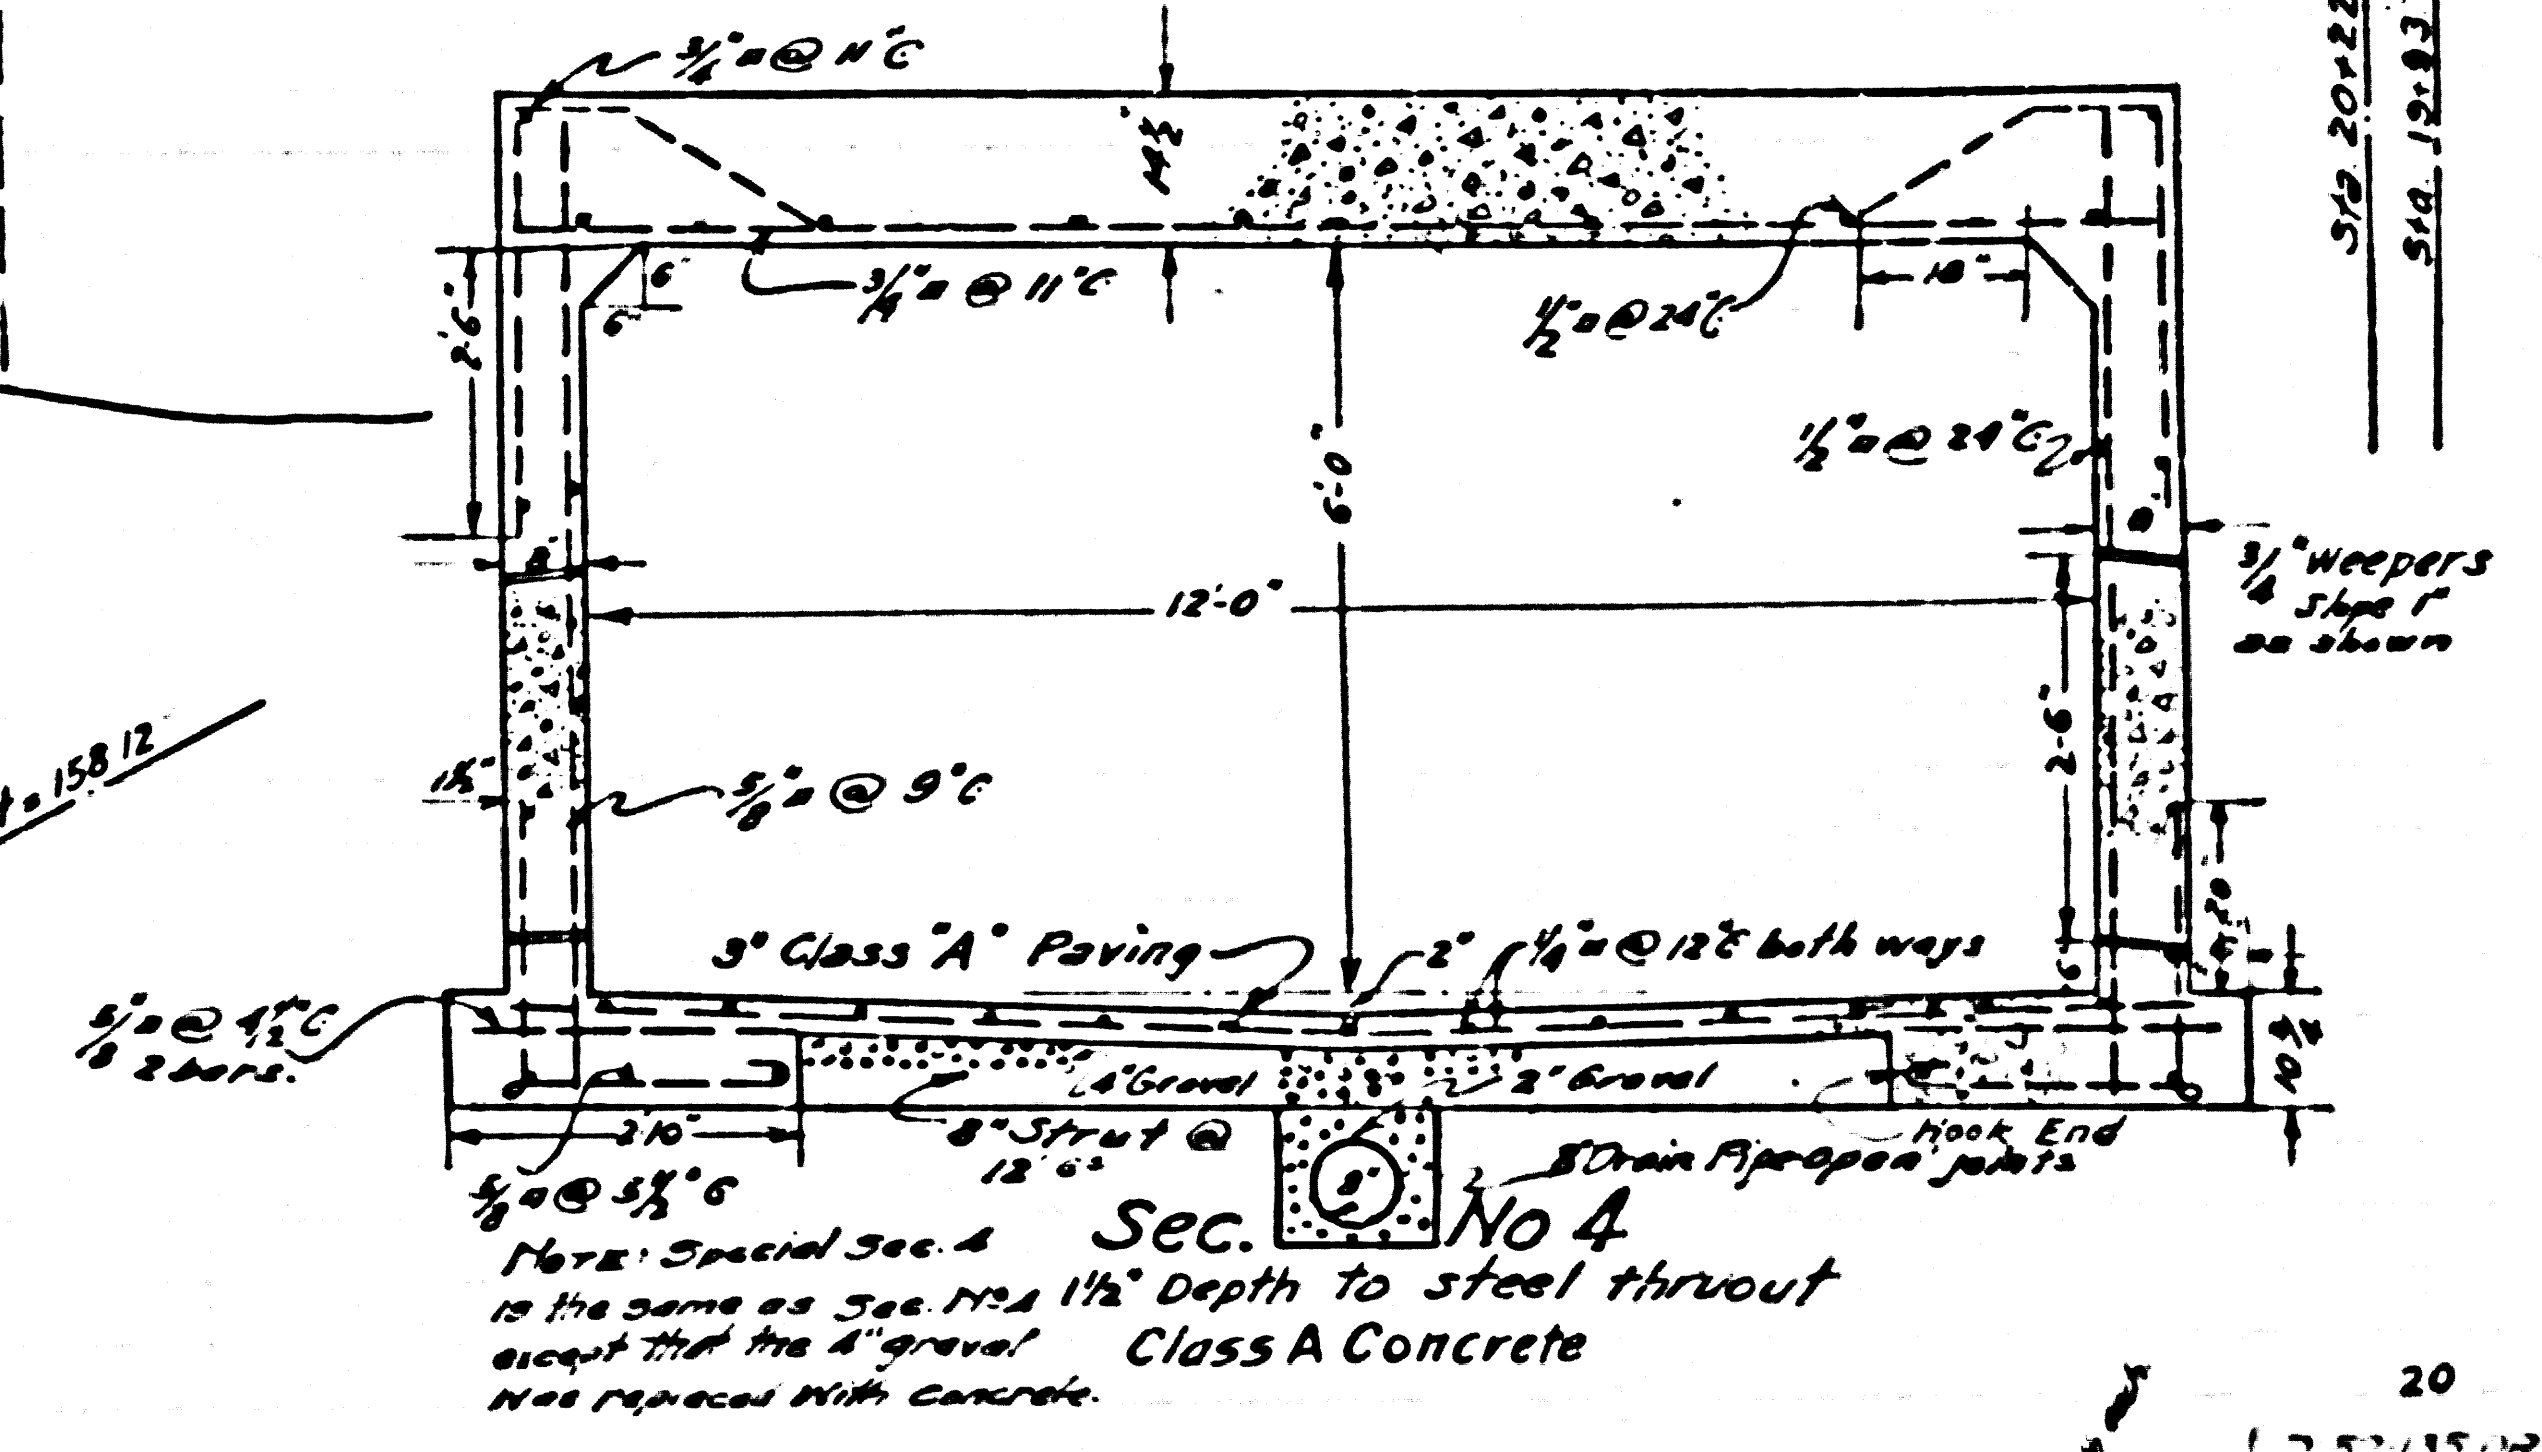 3/4"¤ @ 11"C
14 1/2"
Sta 20+22
Sta 19+93
6"
6"
3/4"¤ @ 11"C
1/2"¤ @ 24"C
18"
2'-6"
6'-0"
1/2"¤ @ 24"C
8"
8"
12'-0"
3/4" Weepers
Slope 1"
as shown
= 158 12
1 1/2"
5/8"¤ @ 9"C
2'-6"
3" Class "A" Paving
2"
1/4"¤ @ 12"C both ways
6
5/8"¤ @ 4 1/2"C
2 bars.
10 1/2
4" Gravel
2" Gravel
2'10"
8" Strut @
12' Cs
Hook End
8" Drain Pipe open joints
8"
5/8¤ @ 5 1/2" C
Sec. No 4
Note: Special Sec. 4
is the same as Sec. No 4
except that the 4" gravel
was replaced with concrete.
1 1/2" Depth to steel thruout
Class A Concrete
20